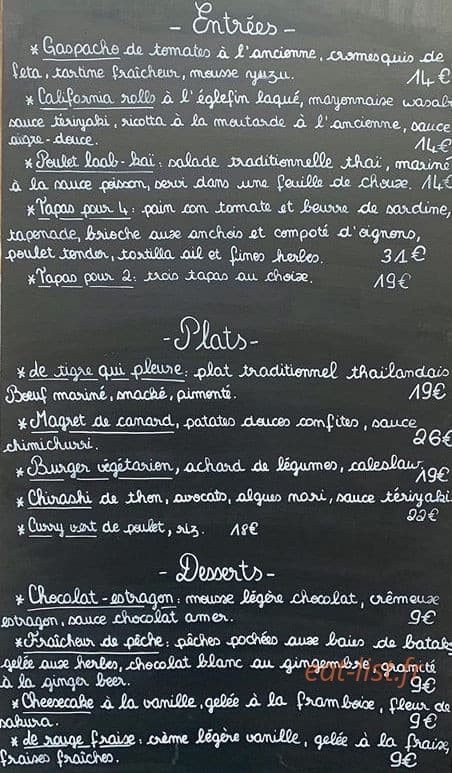 - Entrées -
* Gaspacho de tomates à l'ancienne, cromesquis de
feta, tartine fraîcheur, mousse yuzu. 14€
* California rolls à l'églefin laqué, mayonnaise wasabi
sauce tériyaki, ricotta à la moutarde à l'ancienne, sauce
aigre-douce. 14€
* Poulet laab-kaï: salade traditionnelle thaï, mariné
à la sauce poisson, servi dans une feuille de choux. 14€
* Tapas pour 4: pain con tomate et beurre de sardine,
tapenade, brioche aux anchois et compoté d'oignons,
poulet tender, tortilla ail et fines herbes. 31€
* Tapas pour 2: trois tapas au choix. 19€
- Plats -
* de tigre qui pleure: plat traditionnel thaïlandais
Bœuf mariné, snacké, pimenté. 19€
* Magret de canard, patates douces confites, sauce
chimichurri. 26€
* Burger végétarien, achard de légumes, coleslaw 19€
* Chirashi de thon, avocats, algues nori, sauce tériyaki
22€
* Curry vert de poulet, riz. 18€
- Desserts -
* Chocolat-estragon: mousse légère chocolat, crémeux
estragon, sauce chocolat amer. 9€
* Fraîcheur de pêche: pêches pochées aux baies de batak,
gelée aux herbes, chocolat blanc au gingembre, granité
à la ginger beer. 9€
* Cheesecake à la vanille, gelée à la framboise, fleur de
sakura. 9€
* de rouge fraise: crème légère vanille, gelée à la fraise,
fraises fraîches. 9€
eat-list.fr